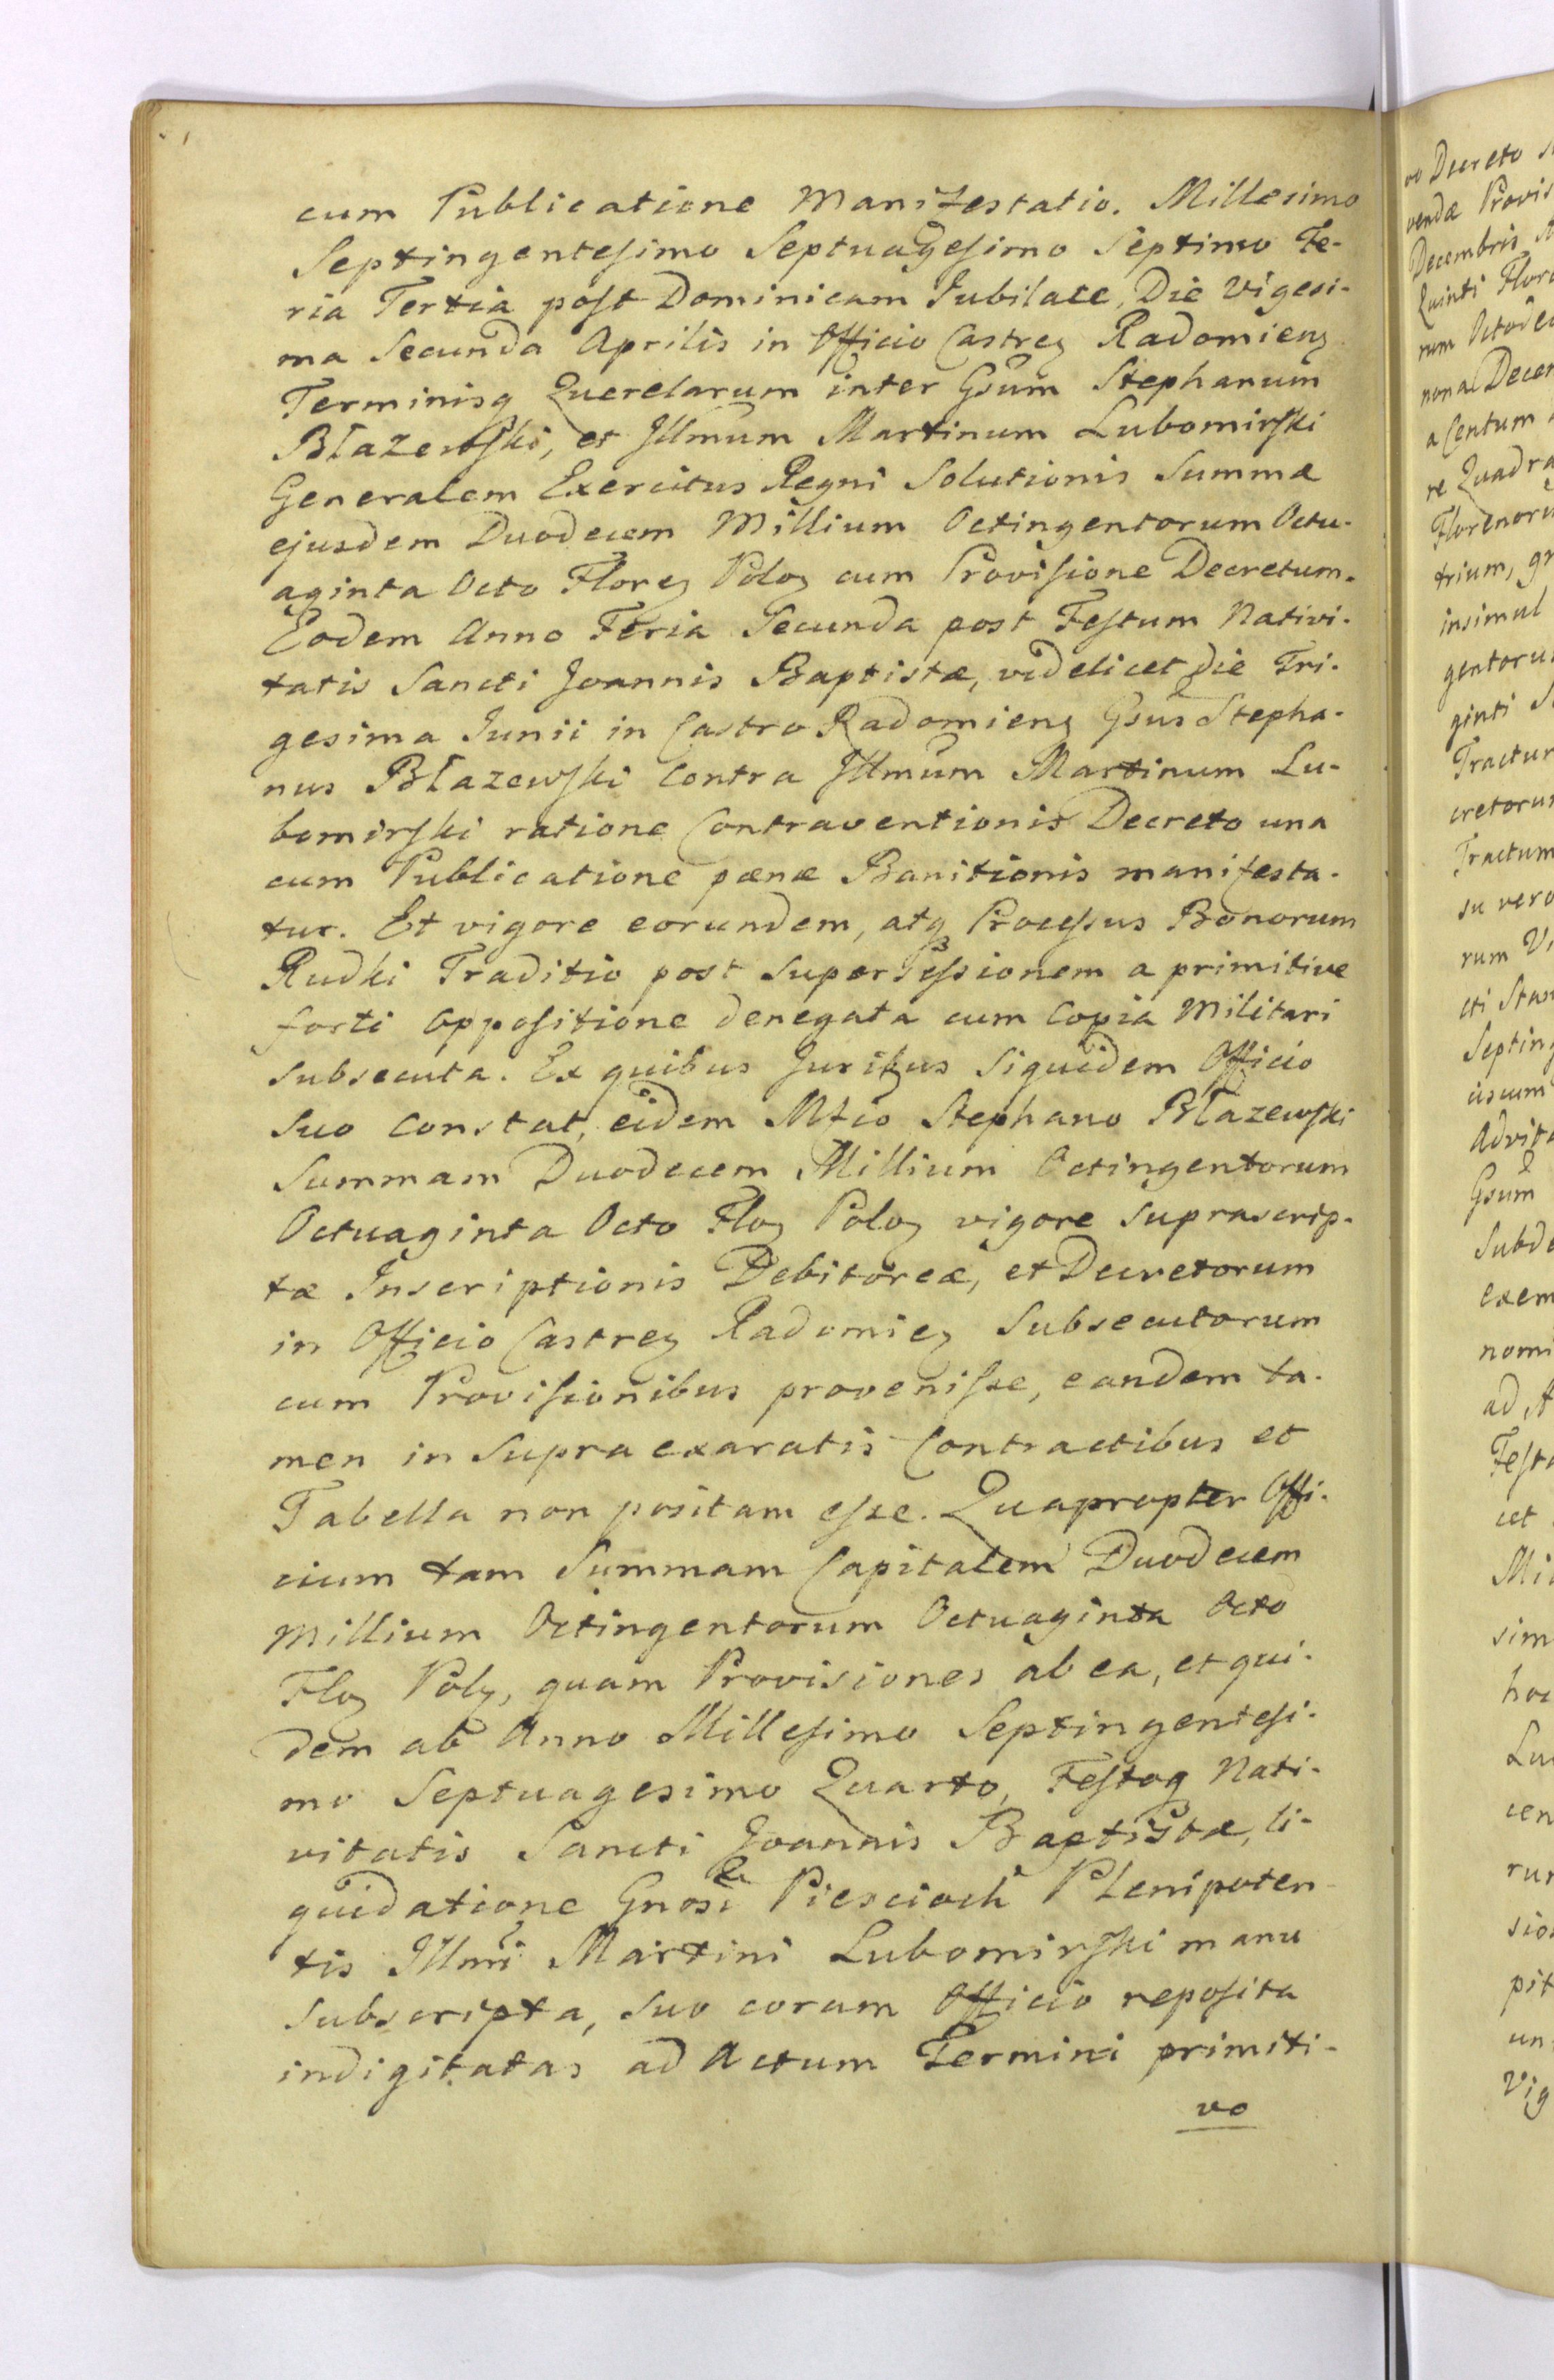 cum Publicatione Manifestatio. Millesimo
Septingentesimo Septuagesimo Septimo Fe-
ria Tertia post Dominicam Jubilate, Die Vigesi-
ma Secunda Aprilis in Officio Castreꝫ Radomienꝫ
Terminisq Querelarum inter Gsum Stephanum
Błazewski, et Jllmum Martinum Lubomirski
Generalem Exercitus Regni Solutionis Summæ
ejusdem Duodecem Millium Octingentorum Octu-
aginta Octo Floreꝫ Poloꝫ cum Provisione Decretum.
Eodem Anno Feria Secunda post Festum Nativi-
tatis Sancti Joannis Baptistæ, videlicet die Tri-
gesima Junii in Castro Radomienꝫ Gsus Stepha-
nus Błazewski Contra Jllmum Martinum Lu-
bomirski ratione Contraventionis Decreto una
cum Publicatione pænæ Banitionis manifesta-
tur. Et vigore eorundem, atq Processus Bonorum
Rudki Traditio post supersessionem a primitive
forti oppositione denegata cum Copia Militari
subsecuta. Ex quibus Juribus siquidem Officio
suo constat, eidem Mfio Stephano Błazewski
Summam Duodecem Millium Octingentorum
Octuaginta Octo Floꝫ Poloꝫ vigore suprascrip-
tæ Inscriptionis Debitoreæ, et Decretorum
in Officio Castreꝫ Radomieꝫ Subsecutorum
cum Provisionibus provenisse, eandem ta-
men in supra exaratis Contractibus et
Tabella non positam esse. Quapropter Offi-
cium tam Summam Capitalem Duodecem
Millium Octingentorum Octuaginta Octo
Floꝫ Polꝫ, quam Provisiones ab ea, et qui-
dem ab Anno Millesimo Septingentesi-
mo Septuagesimo Quarto, Festoq Nati-
vitatis Sancti Joannis Baptistæ, li-
quidatione Gnosi Piescioch Plenipoten-
tis Jllmi Martini Lubomirski manu
subscripta, suo coram Officio reposita
indigitatas ad Actum Termini primiti-
vo
vo Decreto
vendæ
Decembris
Quinti
rum
nona
a Centum
re
trium,
insimul
ginti
su vero
rum
cti
Gsum
nomi
ad
cet